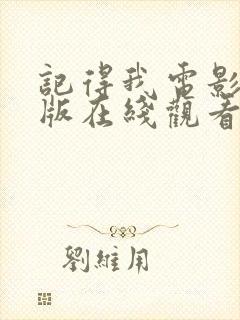 記得我電影
版在綫觀看
劉維用